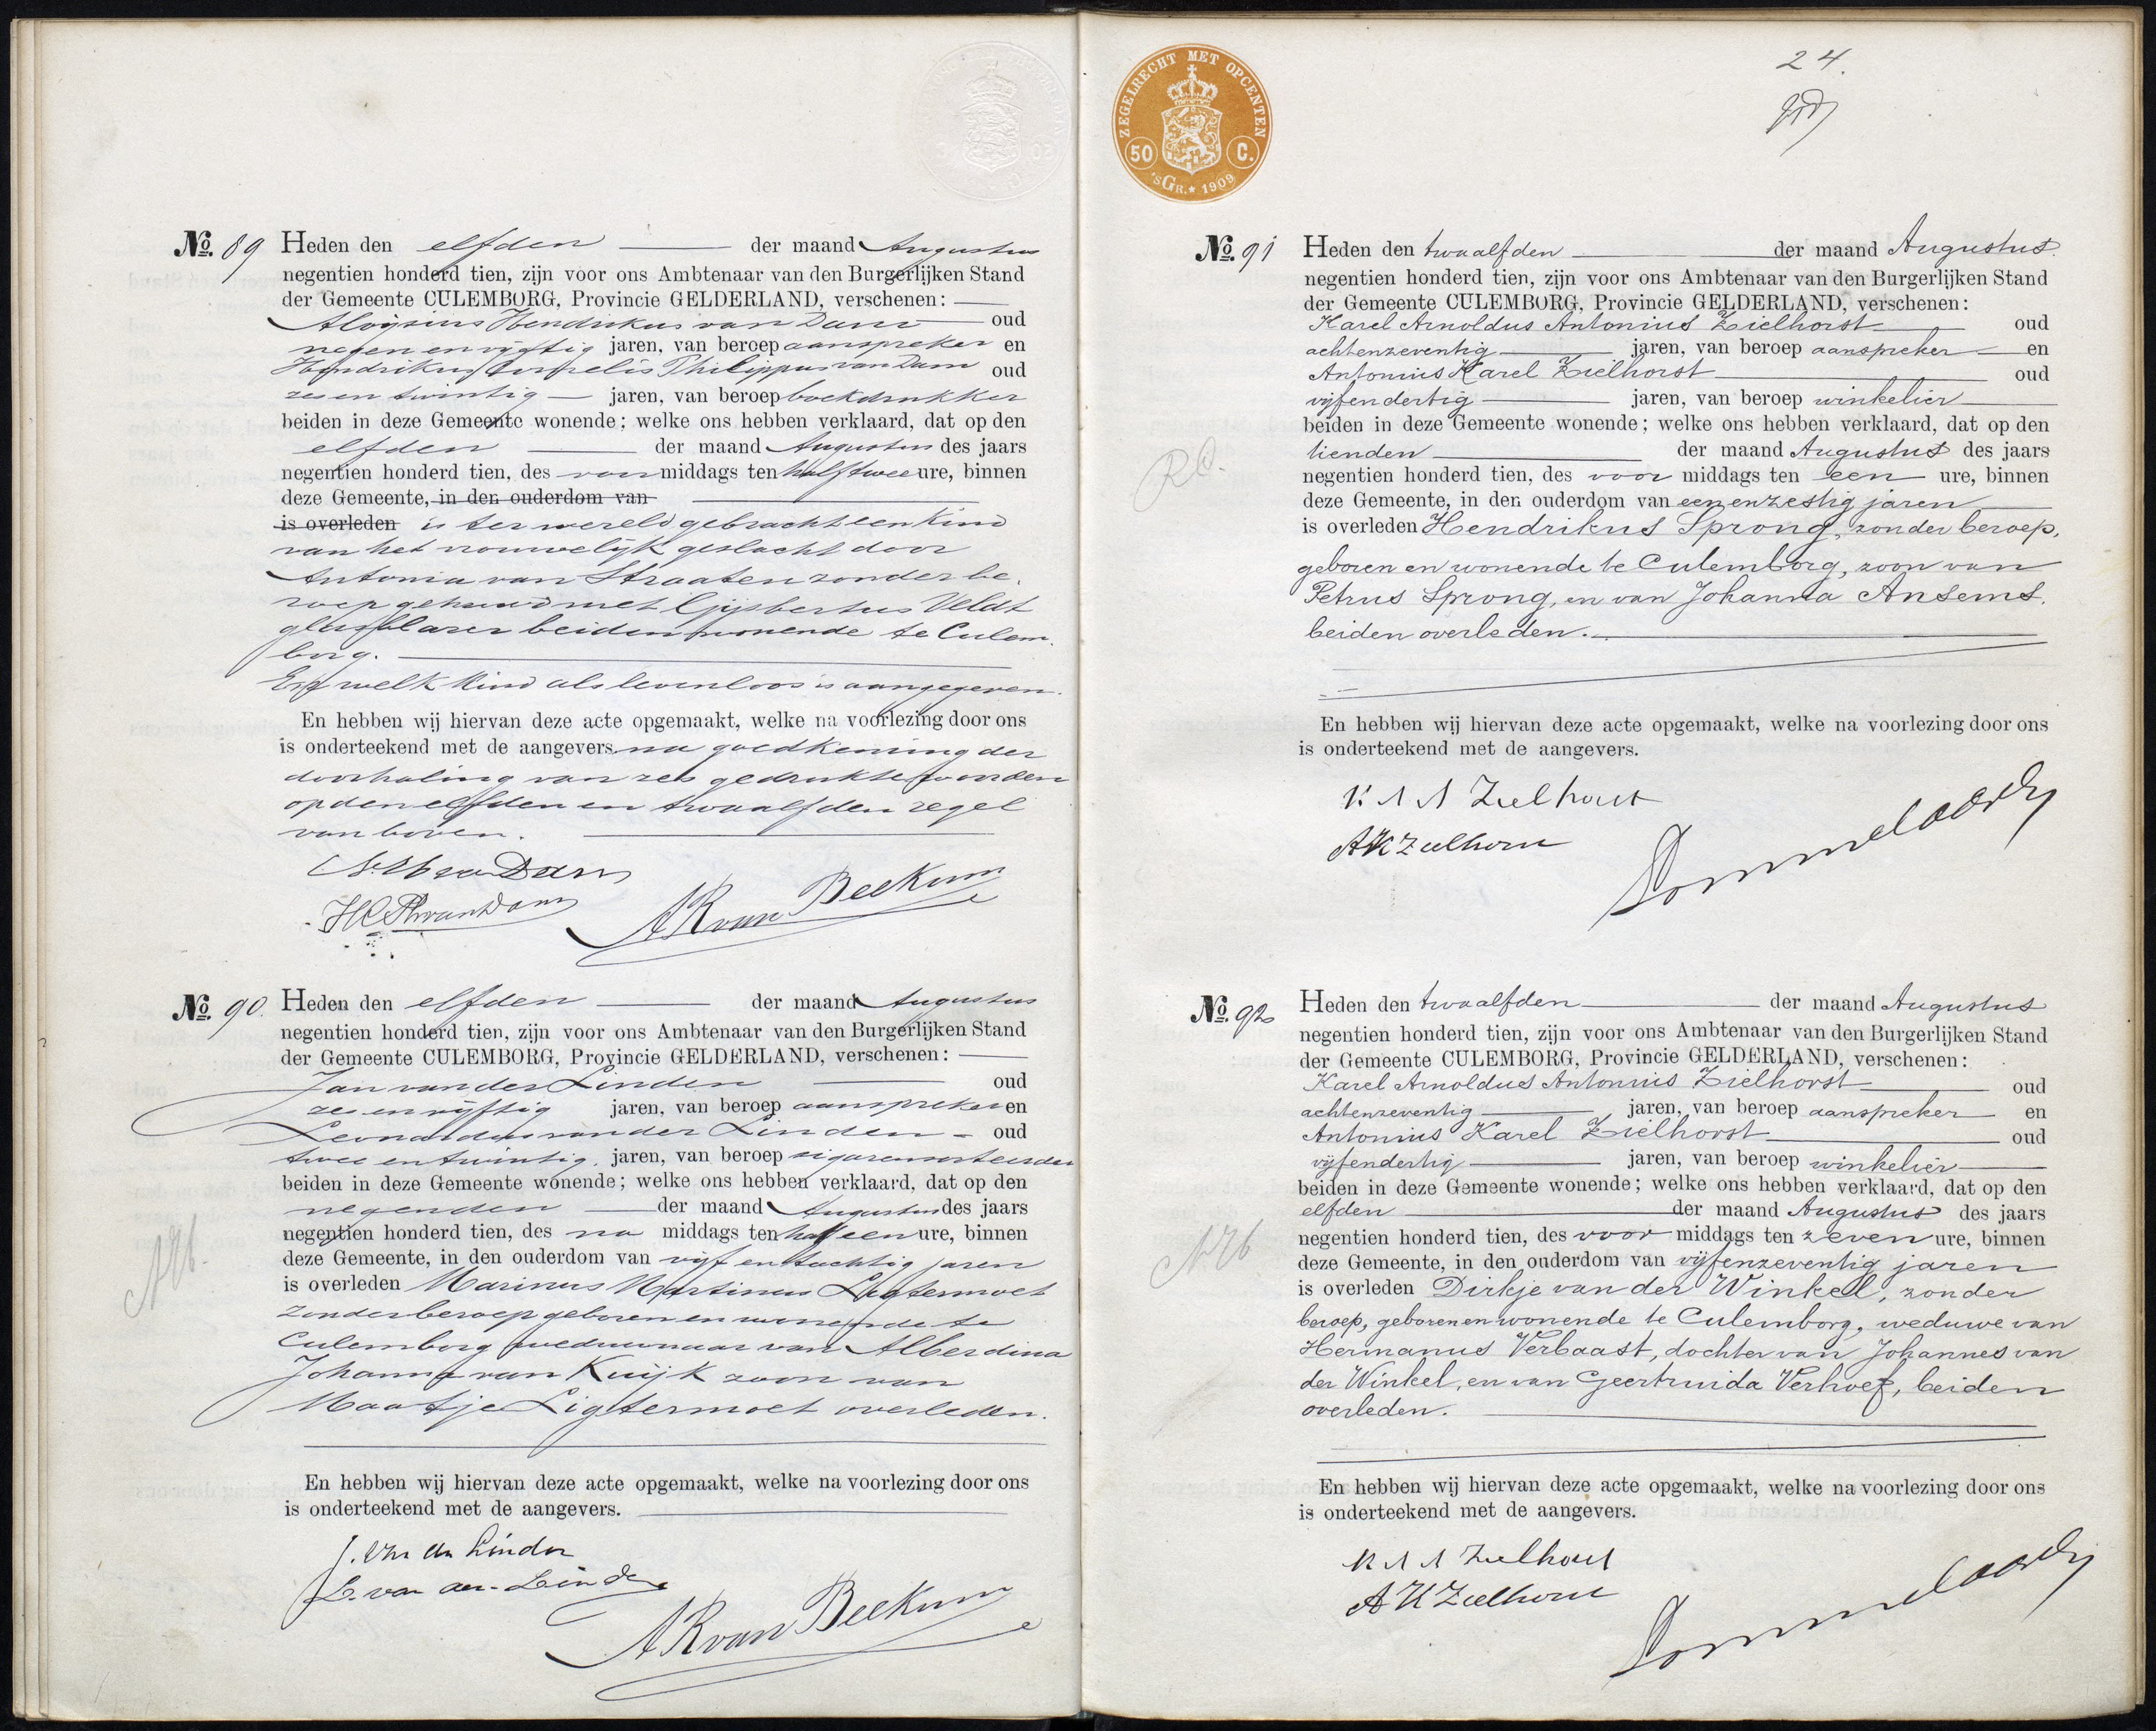 No. 89 Heden den elfden der maand Augustus
negentien honderd tien, zijn voor ons Ambtenaar van den Burgerlijken Stand
der Gemeente CULEMBORG, Provincie GELDERLAND, verschenen:
Aloijsius Hendrikus van Dam oud
negen en vijftig jaren, van beroep aanspreker en
Hendrikus Cornelis Philippus van Dam oud
zes en twintig jaren, van beroep boekdrukker
beiden in deze Gemeente wonende; welke ons hebben verklaard, dat op den
elfden der maand Augustus des jaars
negentien honderd tien, des voormiddags ten half twee ure, binnen
deze Gemeente, in den ouderdom van
is overleden is ter wereld gebracht een kind
van het vrouwelijk geslacht door
Antonia van Straaten zonder be-
roep gehuwd met Gijsbertus Veldt
glasblazer beiden wonende te Culem
borg.
En welk kind als levenloos is aangegeven.
En hebben wij hiervan deze acte opgemaakt, welke na voorlezing door ons
is onderteekend met de aangevers na goedkeuring der
doorhaling van zes gedrukte woorden
op den elfden en twaalfden regel
van boven.
A. H. van Dam
H C Ph van Dam
A R van Beekum
No. 90. Heden den elfden der maand Augustus
negentien honderd tien, zijn voor ons Ambtenaar van den Burgerlijken Stand
der Gemeente CULEMBORG, Provincie GELDERLAND, verschenen:
Jan van der Linden oud
zes en vijftig jaren, van beroep aanspreker en
Leonardus van der Linden oud
twee en twintig jaren, van beroep sigarensorteerder
beiden in deze Gemeente wonende; welke ons hebben verklaard, dat op den
negenden der maand Augustus des jaars
negentien honderd tien, des na middags ten half een ure, binnen
deze Gemeente, in den ouderdom van vijf en tachtig jaren
is overleden Marinus Martinus Ligtermoet
zonder beroep geboren en wonende te
Culemborg weduwnaar van Alberdina
Johanna van Kuijk zoon van
Maatje Ligtermoet overleden.
En hebben wij hiervan deze acte opgemaakt, welke na voorlezing door ons
is onderteekend met de aangevers.
J. van der Linden
L. van der Linden
A R van Beekum
ZEGELRECHT MET OPCENTEN
50 C.
'S GR. * 1909
24.
No. 91 Heden den twaalfden der maand Augustus
negentien honderd tien, zijn voor ons Ambtenaar van den Burgerlijken Stand
der Gemeente CULEMBORG, Provincie GELDERLAND, verschenen:
Karel Arnoldus Antonius Zielhorst oud
achtenzeventig jaren, van beroep aanspreker en
Antonius Karel Zielhorst oud
vijfendertig jaren, van beroep winkelier
beiden in deze Gemeente wonende; welke ons hebben verklaard, dat op den
tienden der maand Augustus des jaars
negentien honderd tien, des voor middags ten een ure, binnen
deze Gemeente, in den ouderdom van eenenzestig jaren
is overleden Hendrikus Sprong, zonder beroep,
geboren en wonende te Culemborg, zoon van
Petrus Sprong, en van Johanna Ansems.
beiden overleden.
En hebben wij hiervan deze acte opgemaakt, welke na voorlezing door ons
is onderteekend met de aangevers.
K A A Zielhorst
A K Zielhorst
No. 92 Heden den twaalfden der maand Augustus
negentien honderd tien, zijn voor ons Ambtenaar van den Burgerlijken Stand
der Gemeente CULEMBORG, Provincie GELDERLAND, verschenen:
Karel Arnoldus Antonius Zielhorst oud
achtenzeventig jaren, van beroep aanspreker en
Antonius Karel Zielhorst oud
vijfendertig jaren, van beroep winkelier
beiden in deze Gemeente wonende; welke ons hebben verklaard, dat op den
elfden der maand Augustus des jaars
negentien honderd tien, des voor middags ten zeven ure, binnen
deze Gemeente, in den ouderdom van vijfenzeventig jaren
is overleden Dirkje van der Winkel, zonder
beroep, geboren en wonende te Culemborg, weduwe van
Hermanus Verbaast, dochter van Johannes van
der Winkel, en van Geertruida Verhoef, beiden
overleden.
En hebben wij hiervan deze acte opgemaakt, welke na voorlezing door ons
is onderteekend met de aangevers.
K A A Zielhorst
A K Zielhorst